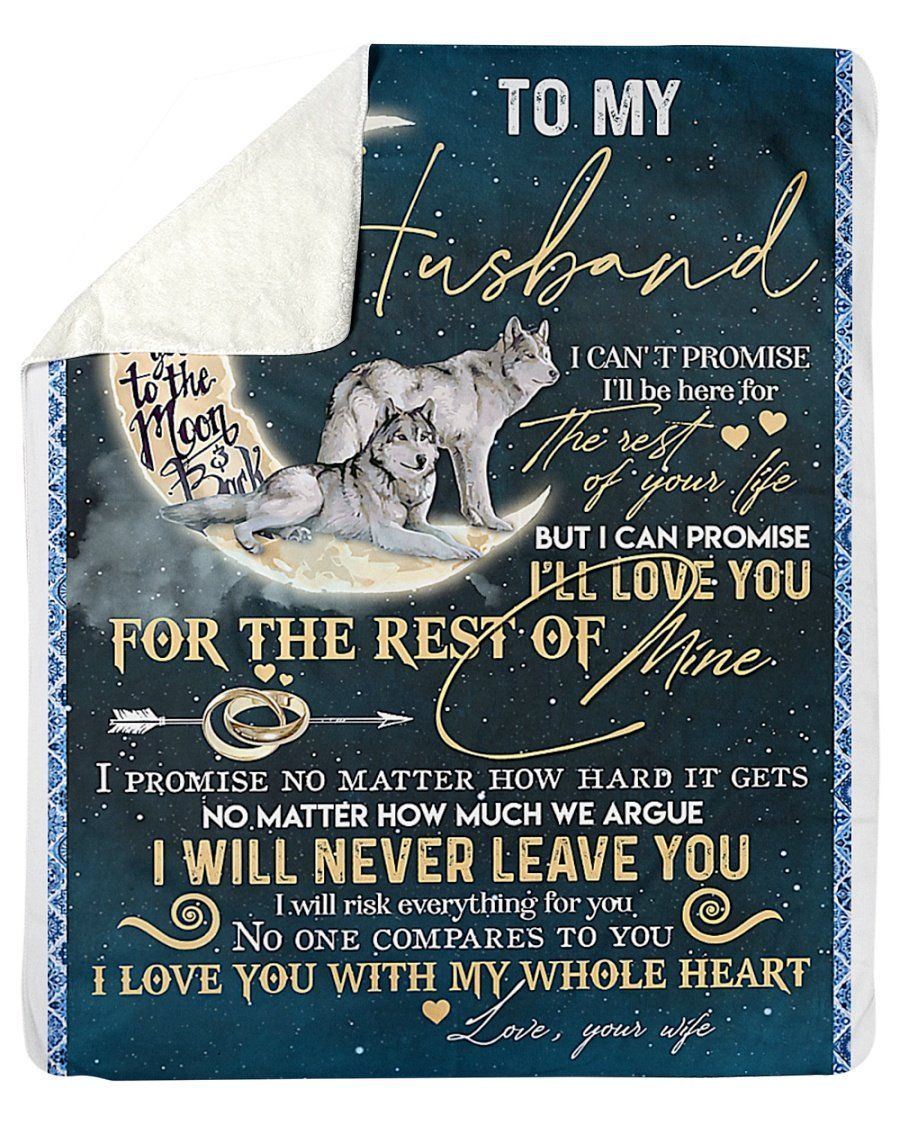 TO MY
Husband
to the
Moon
&
Back
I CAN'T PROMISE
I'll be here for
The rest
of your life
BUT I CAN PROMISE
I'LL LOVE YOU
FOR THE REST OF
Mine
I PROMISE NO MATTER HOW HARD IT GETS
NO MATTER HOW MUCH WE ARGUE
I WILL NEVER LEAVE YOU
I will risk everything for you
NO ONE COMPARES TO YOU
I LOVE YOU WITH MY WHOLE HEART
Love, your wife